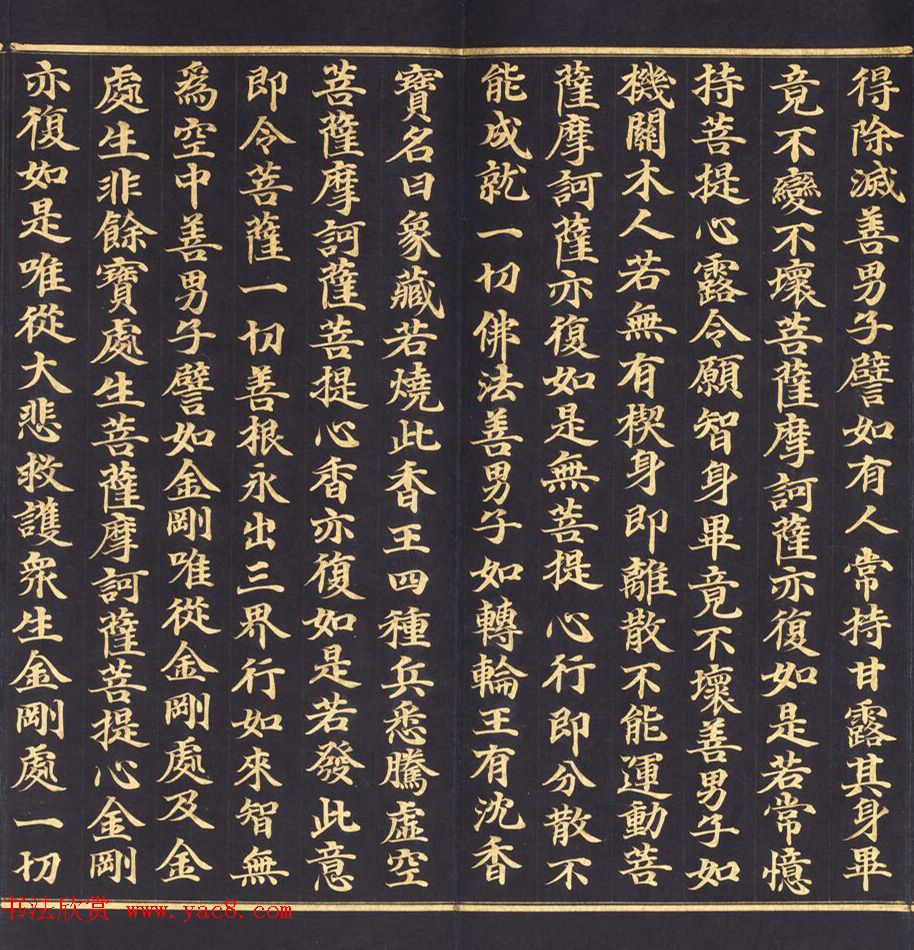 得除滅善男子譬如有人常持甘露其身畢
竟不變不壞菩薩摩訶薩亦復如是若常憶
持菩提心露令願智身畢竟不壞善男子如
機關木人若無有楔身即離散不能運動菩
薩摩訶薩亦復如是無菩提心行即分散不
能成就一切佛法善男子如轉輪王有沈香
寶名曰象藏若燒此香王四種兵悉騰虛空
菩薩摩訶薩菩提心香亦復如是若發此意
即令菩薩一切善根永出三界行如來智無
為空中善男子譬如金剛唯從金剛處及金
處生非餘寶處生菩薩摩訶薩菩提心金剛
亦復如是唯從大悲救護眾生金剛處一切
书法欣赏 www.yac8.com